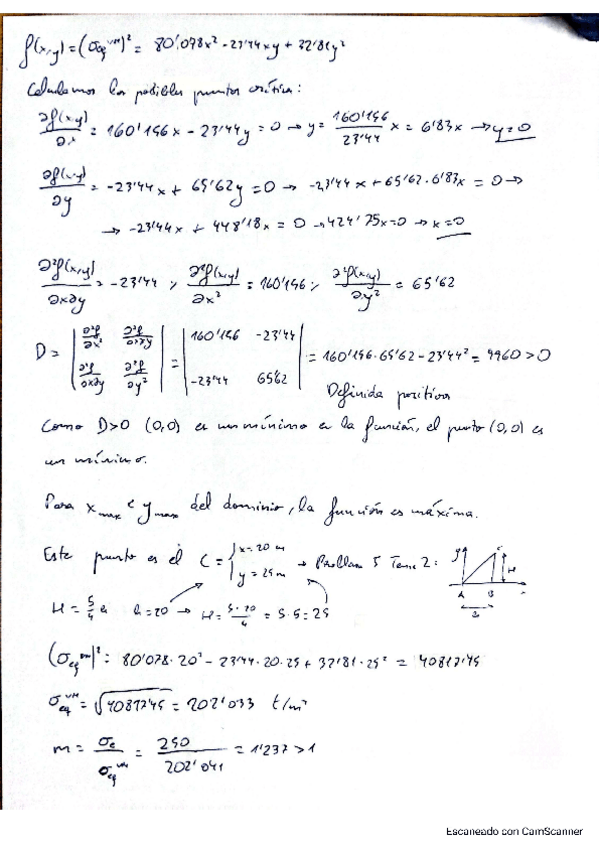 f(x,y)=(σeq^VM)² = 80'078x² - 23'44xy + 32'81y²
Calculamos los posibles puntos críticos:
∂f(x,y)/∂x = 160'156x - 23'44y = 0 → y = 160'156/23'44 x = 6'83x → y=0
∂f(x,y)/∂y = -23'44x + 65'62y = 0 → -23'44x + 65'62·6'83x = 0 →
→ -23'44x + 448'18x = 0 → 424'75x=0 → x=0
∂²f(x,y)/∂x∂y = -23'44 ; ∂²f(x,y)/∂x² = 160'156 ; ∂²f(x,y)/∂y² = 65'62
D = |∂²f/∂x² ∂²f/∂x∂y ; ∂²f/∂x∂y ∂²f/∂y²| = |160'156 -23'44 ; -23'44 65'62| = 160'156·65'62 - 23'44² = 9960 > 0
Definida positiva
Como D>0 (0,0) es un mínimo en la función, el punto (0,0) es
un mínimo.
Para xmax e ymax del dominio, la función es máxima.
Este punto es el C = { x=20 m → Problema 5 Tema 2:
y = 25 m
H = 5/4 h h=20 → H = 5·20/4 = 5·5 = 25
A B C H
(σeq^VM)² = 80'078·20² - 23'44·20·25 + 32'81·25² = 40817'45
σeq^VM = √40817'45 = 202'033 t/m²
m = σe/σeq^VM = 250/202'041 = 1'237 > 1
Escaneado con CamScanner